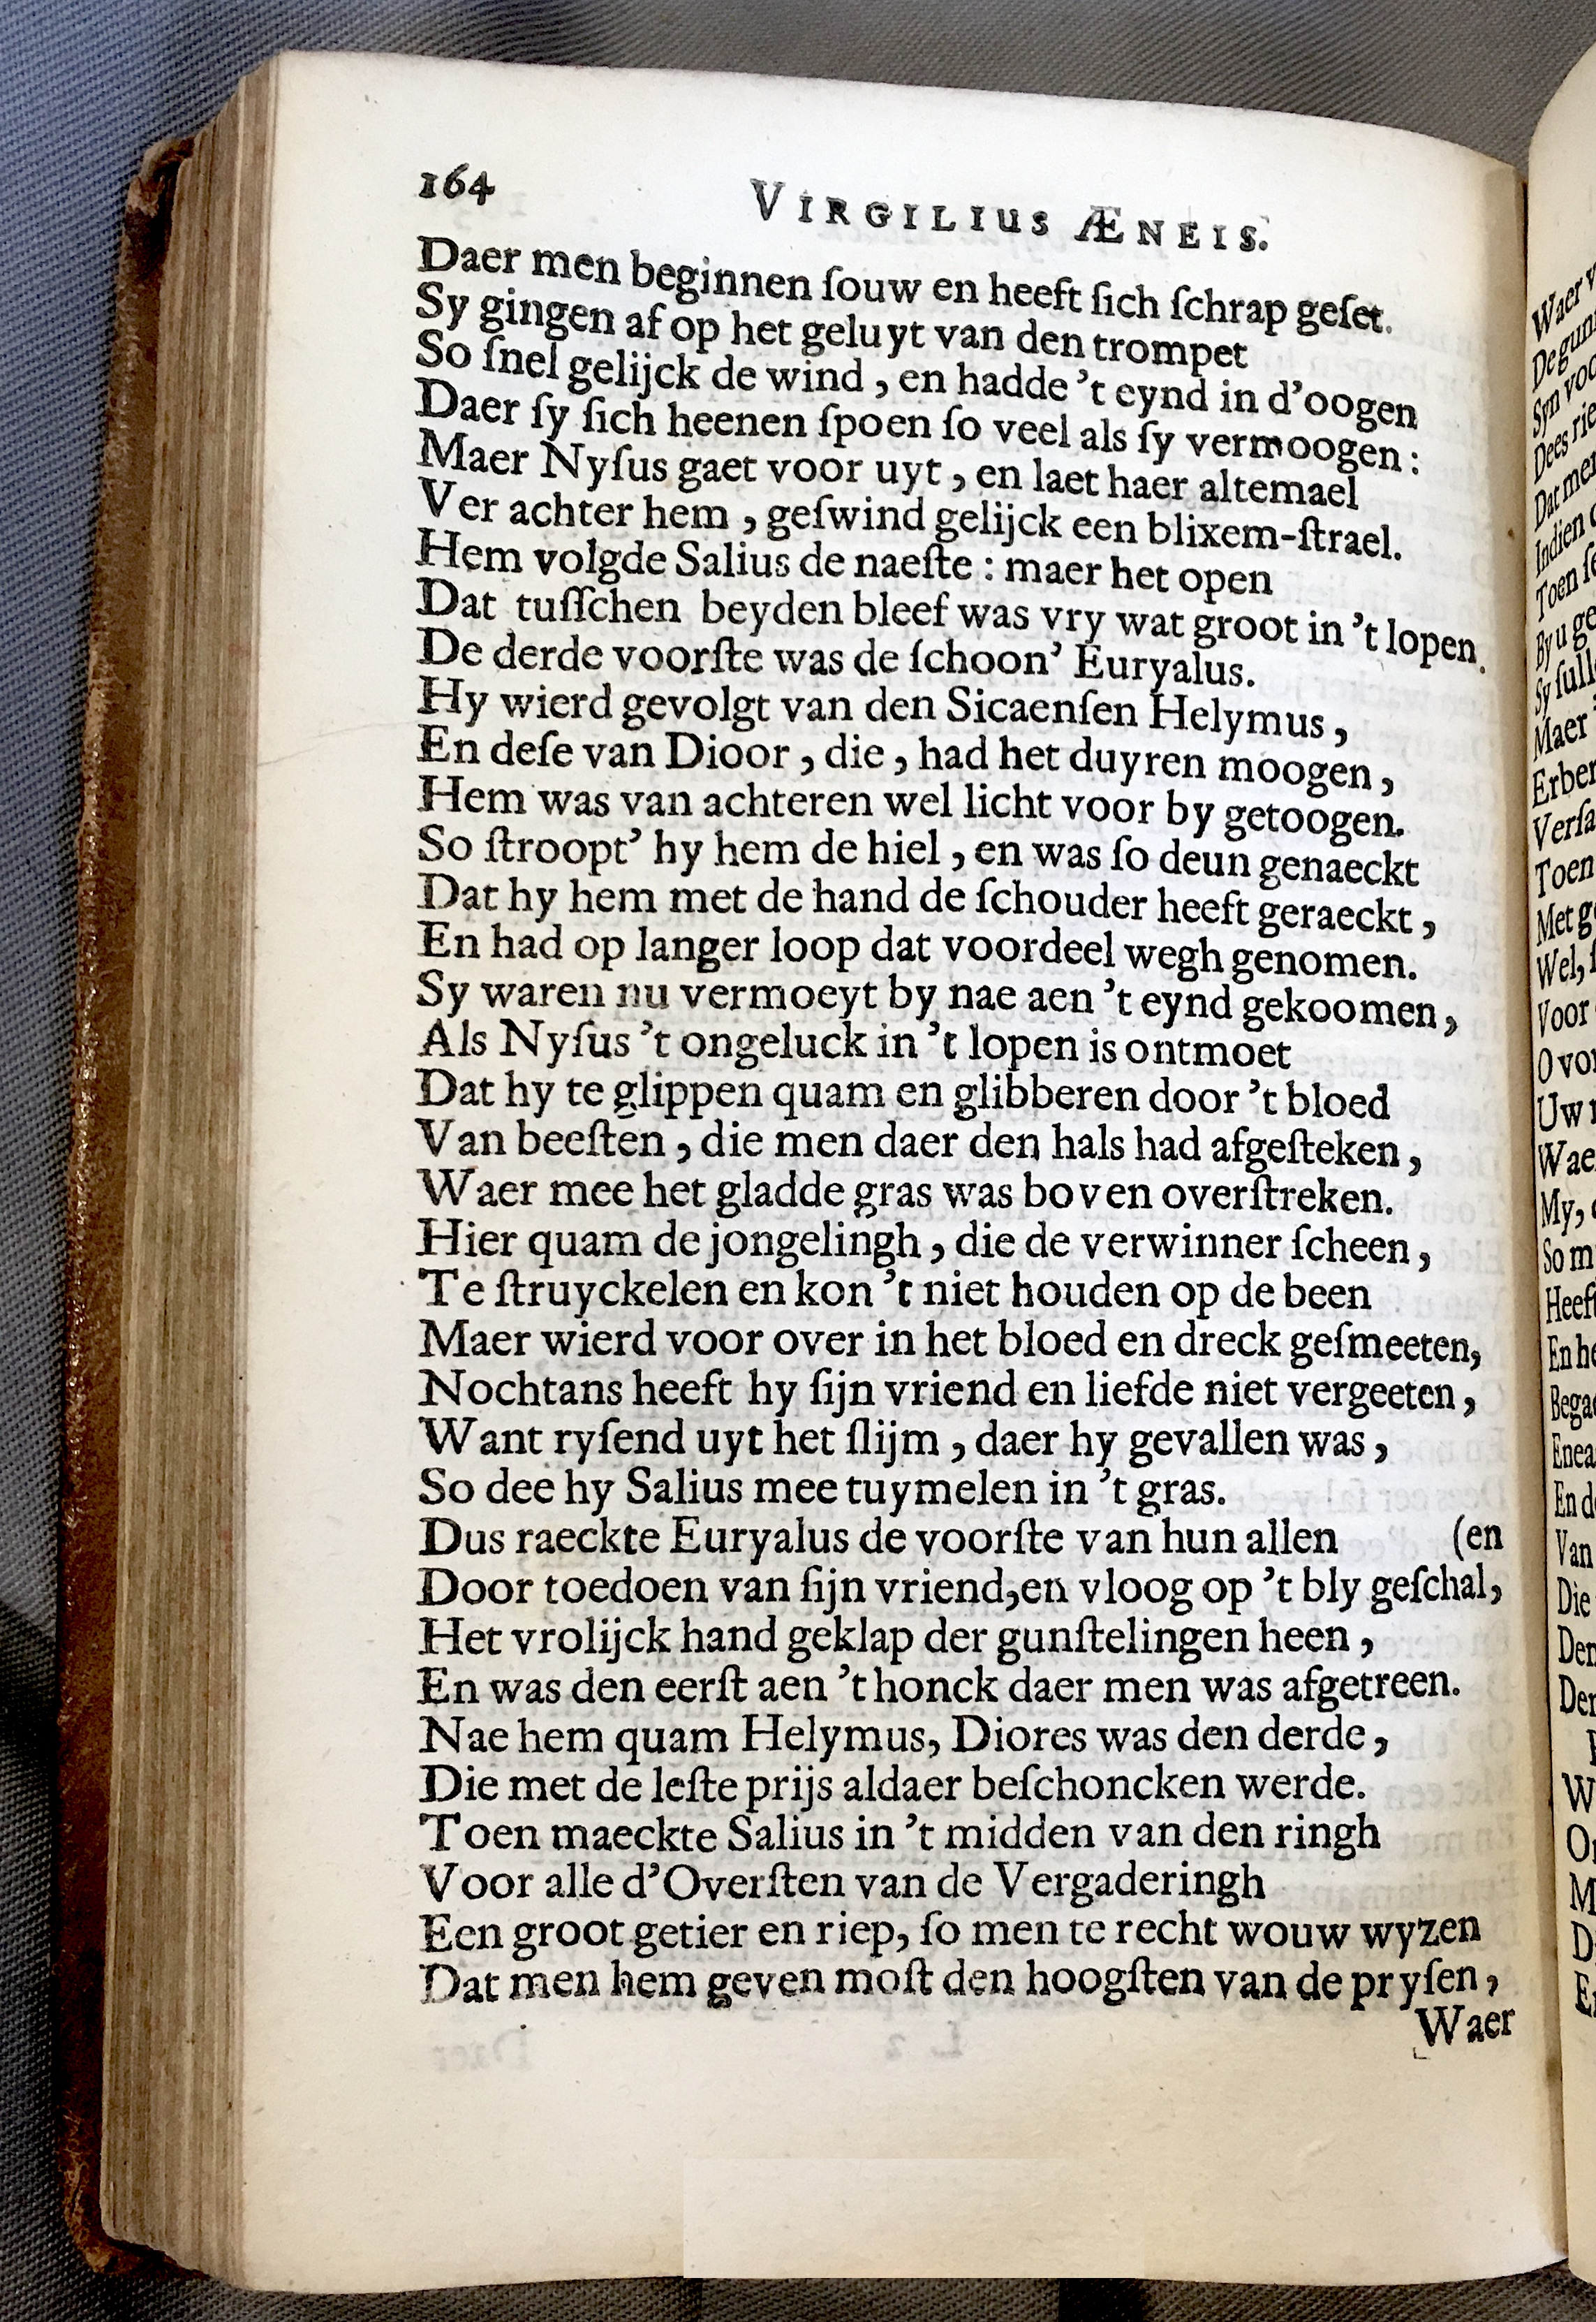 164
VIRGILIUS ÆNEIS.
Daer men beginnen ſouw en heeft ſich ſchrap geſet.
Sy gingen af op het geluyt van den trompet
So ſnel gelijck de wind, en hadde 't eynd in d'oogen
Daer ſy ſich heenen ſpoen ſo veel als ſy vermoogen:
Maer Nyſus gaet voor uyt, en laet haer altemael
Ver achter hem, geſwind gelijck een blixem-ſtrael.
Hem volgde Salius de naeſte: maer het open
Dat tuſſchen beyden bleef was vry wat groot in 't lopen.
De derde voorſte was de ſchoon' Euryalus.
Hy wierd gevolgt van den Sicaenſen Helymus,
En deſe van Dioor, die, had het duyren moogen,
Hem was van achteren wel licht voor by getoogen.
So ſtroopt' hy hem de hiel, en was ſo deun genaeckt
Dat hy hem met de hand de ſchouder heeft geraeckt,
En had op langer loop dat voordeel wegh genomen.
Sy waren nu vermoeyt by nae aen 't eynd gekoomen,
Als Nyſus 't ongeluck in 't lopen is ontmoet
Dat hy te glippen quam en glibberen door 't bloed
Van beeſten, die men daer den hals had afgeſteken,
Waer mee het gladde gras was boven overſtreken.
Hier quam de jongelingh, die de verwinner ſcheen,
Te ſtruyckelen en kon 't niet houden op de been
Maer wierd voor over in het bloed en dreck geſmeeten,
Nochtans heeft hy ſijn vriend en liefde niet vergeeten,
Want ryſend uyt het ſlijm, daer hy gevallen was,
So dee hy Salius mee tuymelen in 't gras.
Dus raeckte Euryalus de voorſte van hun allen (en
Door toedoen van ſijn vriend,en vloog op 't bly geſchal,
Het vrolijck hand geklap der gunſtelingen heen,
En was den eerſt aen 't honck daer men was afgetreen.
Nae hem quam Helymus, Diores was den derde,
Die met de leſte prijs aldaer beſchoncken werde.
Toen maeckte Salius in 't midden van den ringh
Voor alle d'Overſten van de Vergaderingh
Een groot getier en riep, ſo men te recht wouw wyzen
Dat men hem geven moſt den hoogſten van de pryſen,
Waer